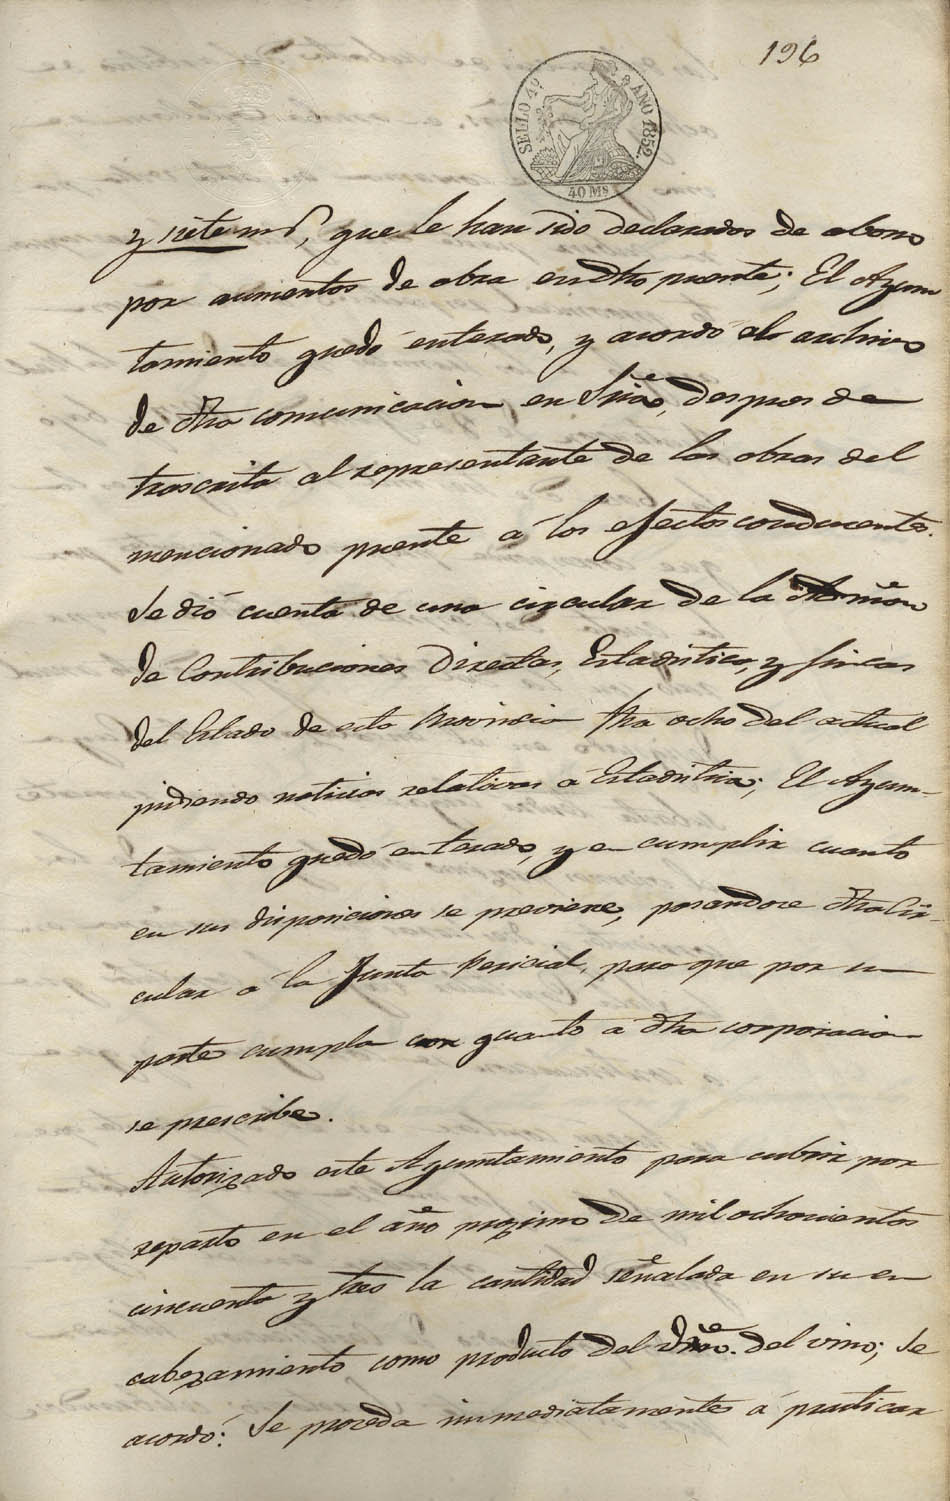 196
SELLO 4º AÑO 1852.
40 Ms
y siete ms, que le han sido declarados de abono
por aumentos de obra en dho puente; El Ayun
tamiento quedó enterado, y acordó el archivo
de dha comunicacion en Sria, despues de
trascrita al representante de las obras del
mencionado puente á los efectos conducentes.
Se dió cuenta de una circular de la Admon
de Contribuciones Directas, Estadistica, y fincas
del Estado de esta Provincia fha ocho del actual
pidiendo noticias relativas á Estadistica; El Ayun-
tamiento quedó enterado, y en cumplir cuanto
en sus disposiciones se previene, pasandose dha Cir-
cular á la Junta Pericial, para que por su
parte cumpla con quanto á dha corporacion
se prescribe.
Autorizado este Ayuntamiento para cubrir por
reparto en el año proximo de mil ochocientos
cincuenta y tres la cantidad señalada en su en
cabezamiento como producto del dro. del vino; se
acordó: Se proceda inmediatamente á practicar